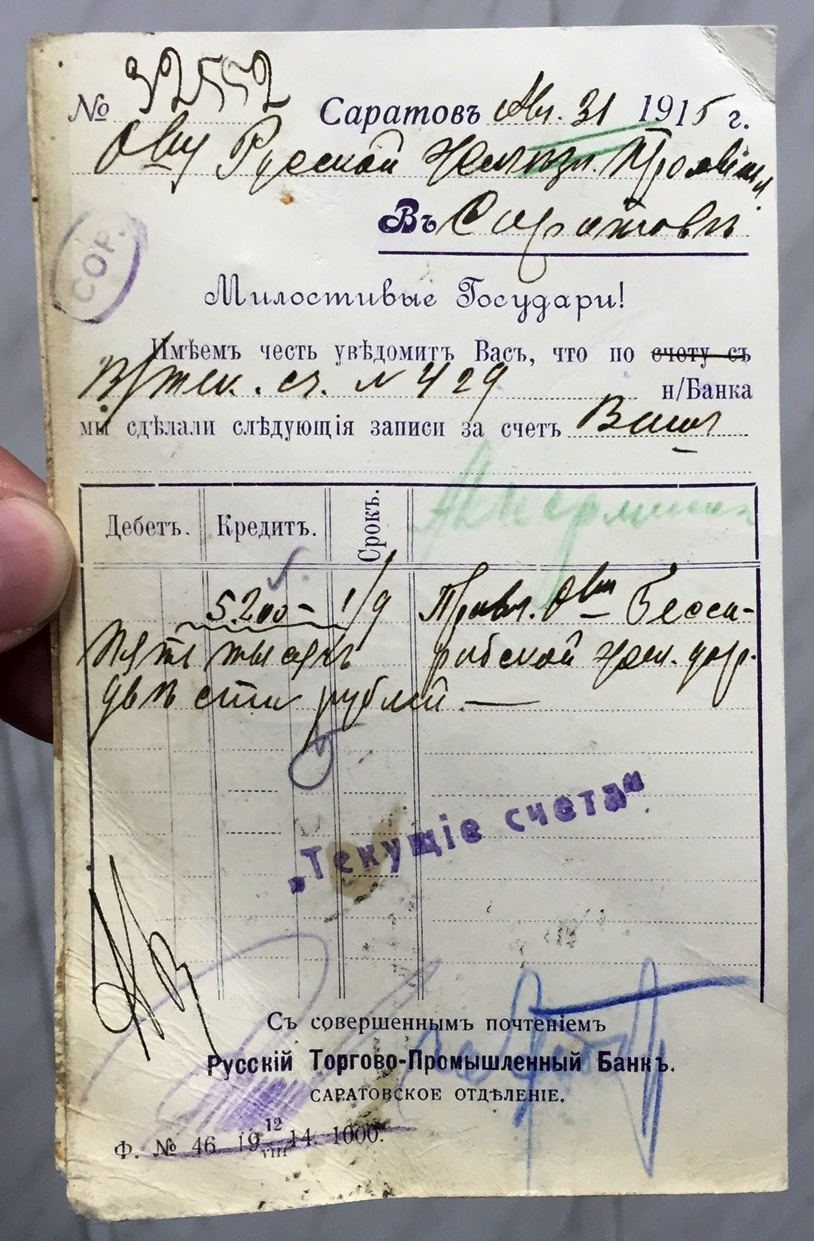 № 32552 Саратовъ Авг. 31 1915 г.
Ову Русской
Въ Саратовѣ
СОР.
Милостивые Государи!
Имѣемъ честь увѣдомить Васъ, что по счету съ
тек. сч. № 429 н/Банка
мы сдѣлали слѣдующія записи за счетъ Вашъ
Дебетъ. Кредитъ. Срокъ.
5.200 - 1/9 Правл. Ова Бесса-
Пять тысячъ рабской жел. дор.
двѣсти рублей —
„Текущіе счета“
Съ совершеннымъ почтеніемъ
Русскій Торгово-Промышленный Банкъ.
САРАТОВСКОЕ ОТДѢЛЕНІЕ.
Ф. № 46. 19 12/VIII 14. 1000.